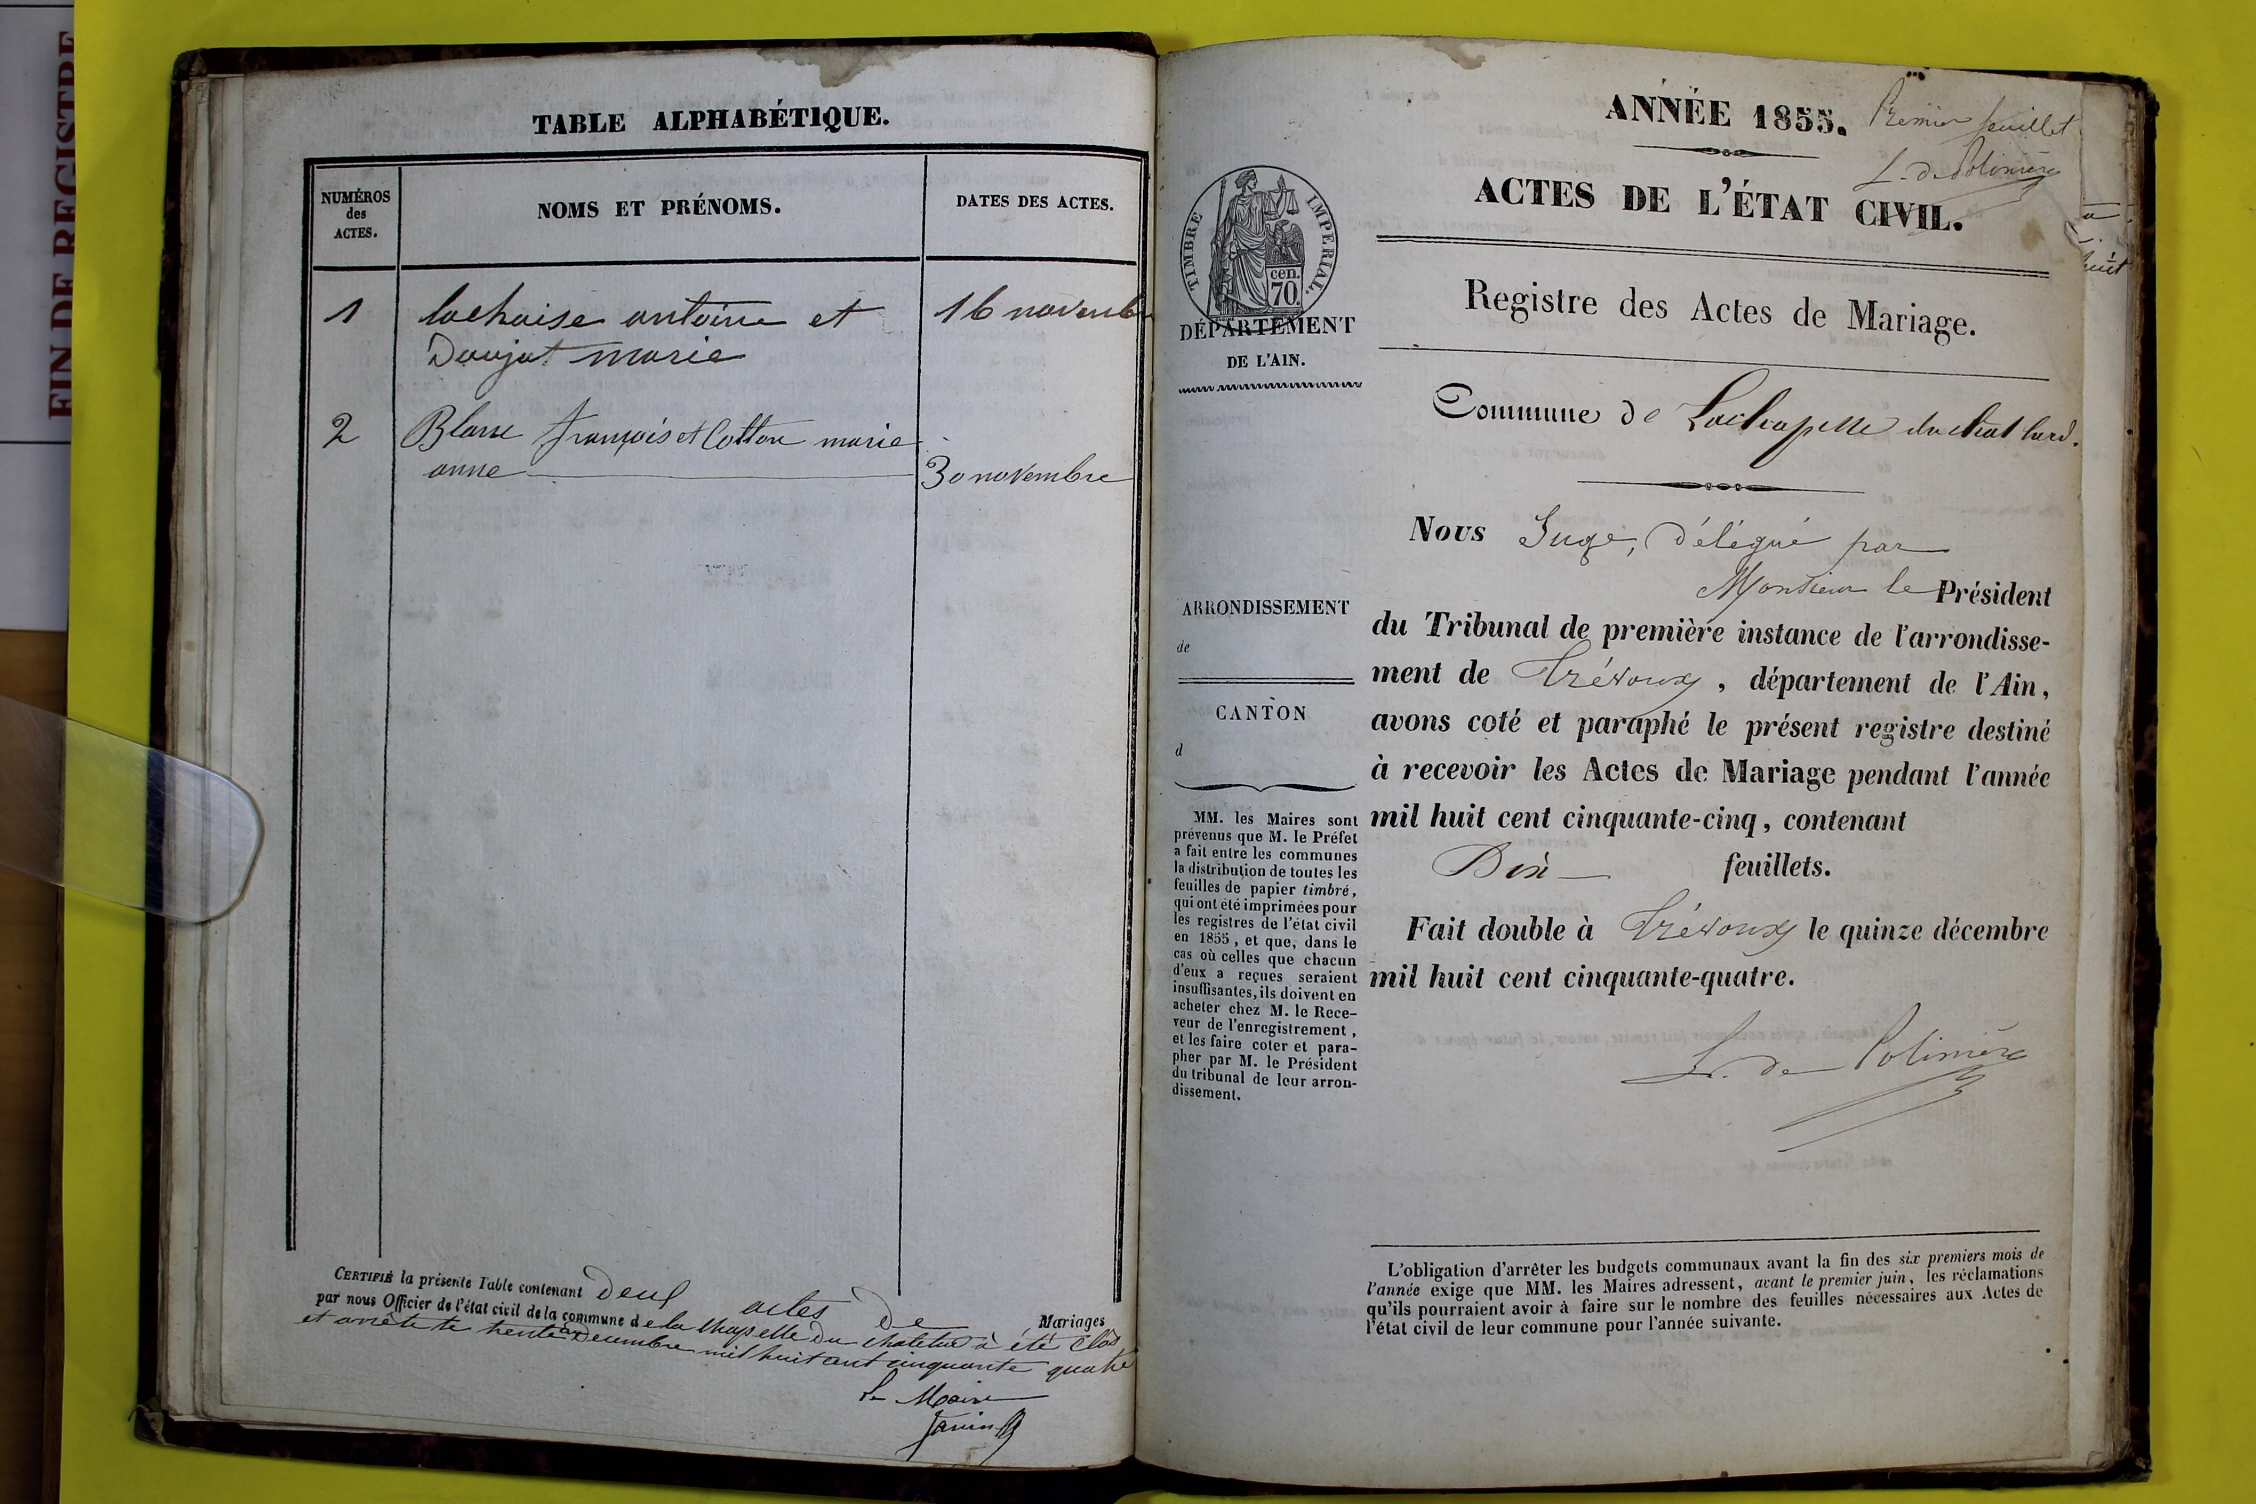 FIN DE REGISTRE
TABLE ALPHABÉTIQUE.
NUMÉROS
des
ACTES.
NOMS ET PRÉNOMS.
DATES DES ACTES.
1 lachaise antoine et 16 novembre
Daujat marie
2 Blanc françois et Cotton marie
anne 30 novembre
CERTIFIÉ la présente Table contenant Deux actes De Mariages
par nous Officier de l'état civil de la commune de la Chapelle Du Chatelard à été Clos
et arrêté le trente un Decembre mil huit cent cinquante quatre
Le Maire
Janin
ANNÉE 1855.
Premier feuillet
L. de Polinière
ACTES DE L'ÉTAT CIVIL.
Registre des Actes de Mariage.
TIMBRE IMPERIAL.
cen.
70.
DÉPARTEMENT
DE L'AIN.
Commune de Lachapelle du chatelard.
Nous Juge, Délégué par
Monsieur le Président
du Tribunal de première instance de l'arrondisse-
ment de Trévoux, département de l'Ain,
avons coté et paraphé le présent registre destiné
à recevoir les Actes de Mariage pendant l'année
mil huit cent cinquante-cinq, contenant
Dix feuillets.
Fait double à Trévoux le quinze décembre
mil huit cent cinquante-quatre.
L. de Polinière
ARRONDISSEMENT
de
CANTON
d
MM. les Maires sont
prévenus que M. le Préfet
a fait entre les communes
la distribution de toutes les
feuilles de papier timbré,
qui ont été imprimées pour
les registres de l'état civil
en 1855, et que, dans le
cas où celles que chacun
d'eux a reçues seraient
insuffisantes, ils doivent en
acheter chez M. le Rece-
veur de l'enregistrement,
et les faire coter et para-
pher par M. le Président
du tribunal de leur arron-
dissement.
L'obligation d'arrêter les budgets communaux avant la fin des six premiers mois de
l'année exige que MM. les Maires adressent, avant le premier juin, les réclamations
qu'ils pourraient avoir à faire sur le nombre des feuilles nécessaires aux Actes de
l'état civil de leur commune pour l'année suivante.